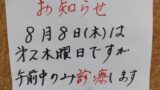 お知らせ
8月8日(木)は
第2木曜日ですが
午前中のみ診療します